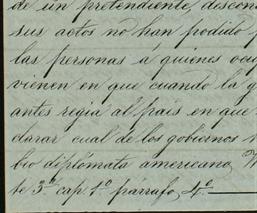 de un pretendiente, descono
sus actos no han podido
las personas á quienes ocup
vienen en que cuando la g
antes regia al país en que
clarar cual de los gobiernos
bo diplómata americano, W
te 3ª cap 1º párrafo, 4º